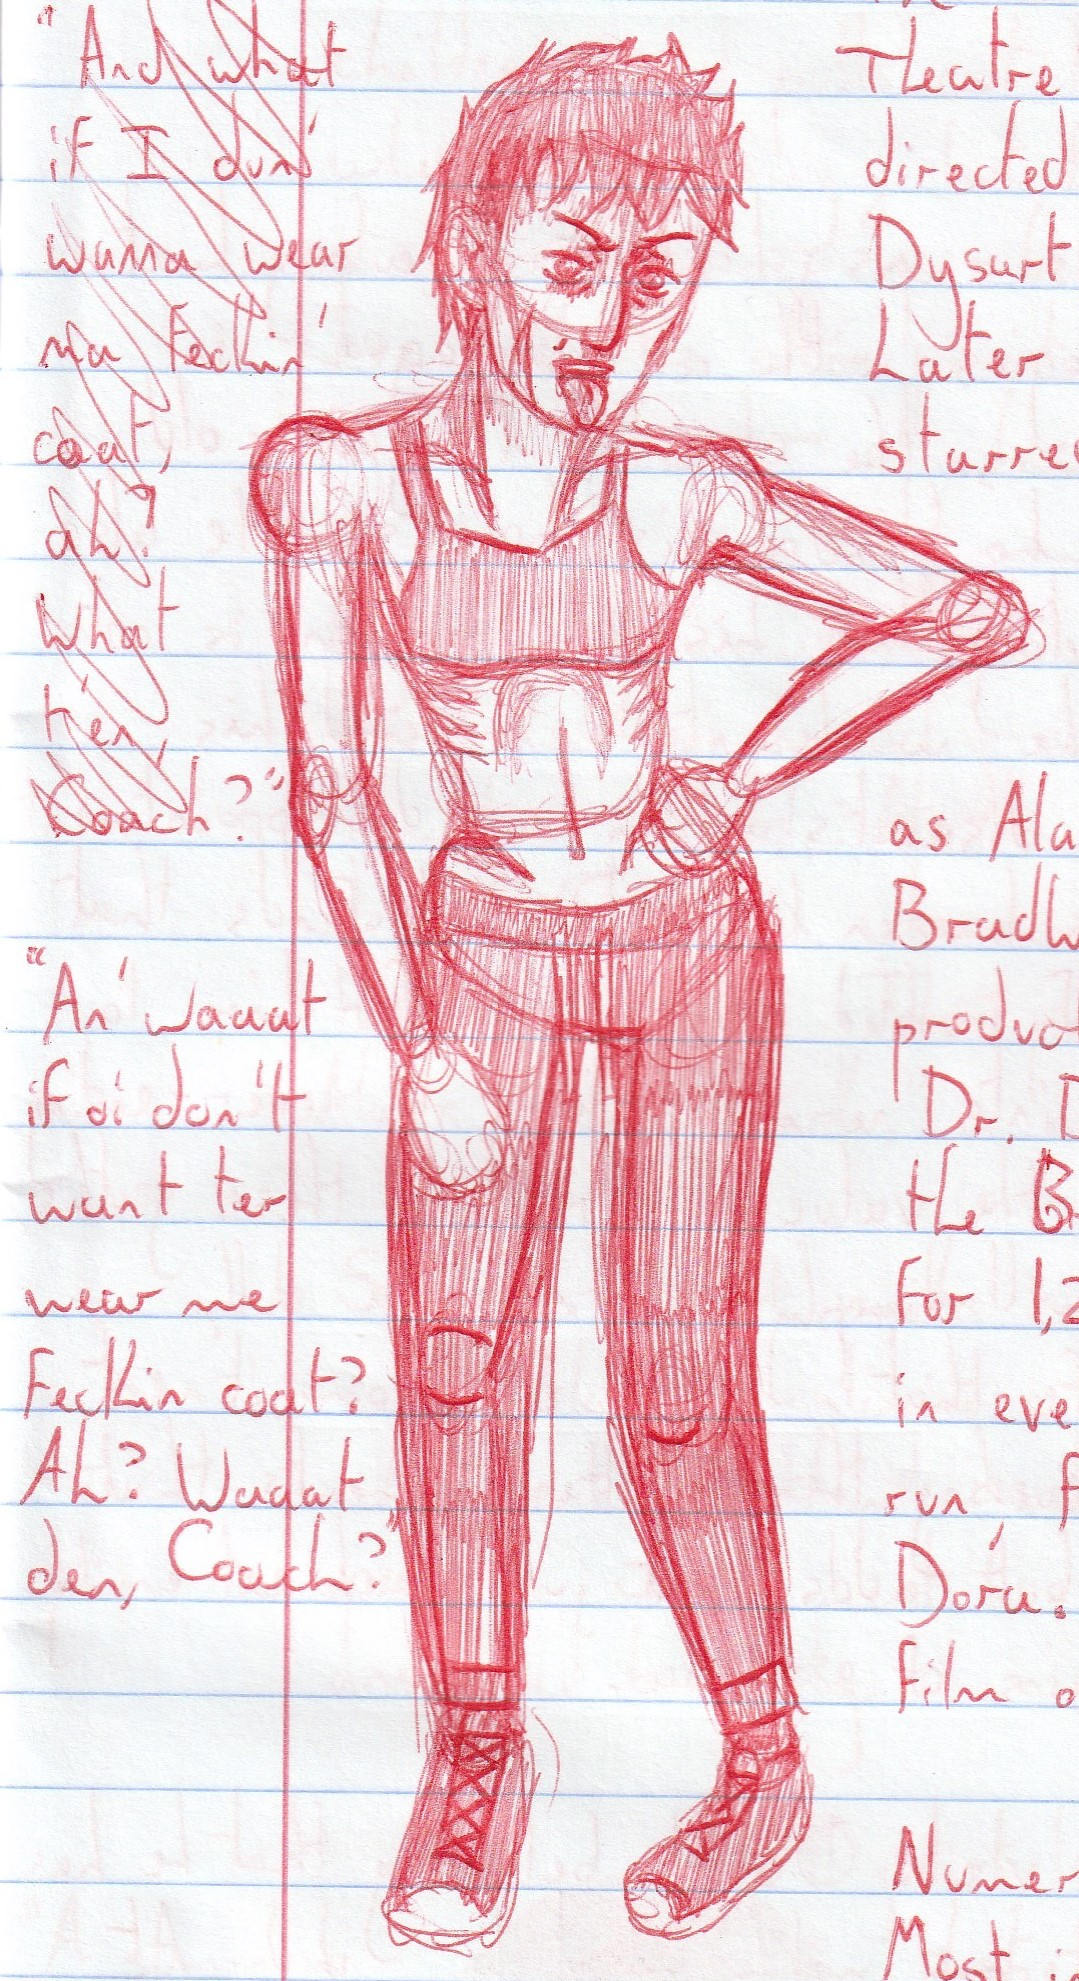 "And what
if I dun'
wanna wear
ma feckin'
coat,
ah?
What
then,
Coach?"
"An' waaat
if oi don't
want ter
wear me
feckin coat?
Ah? Waaat
den, Coach?"
Theatre
directed
Dysart
Later
starre
as Ala
Bradw
produc
'Dr. D
the B
for 1,2
in eve
run, f
Dora.
film o
Numer
Most i